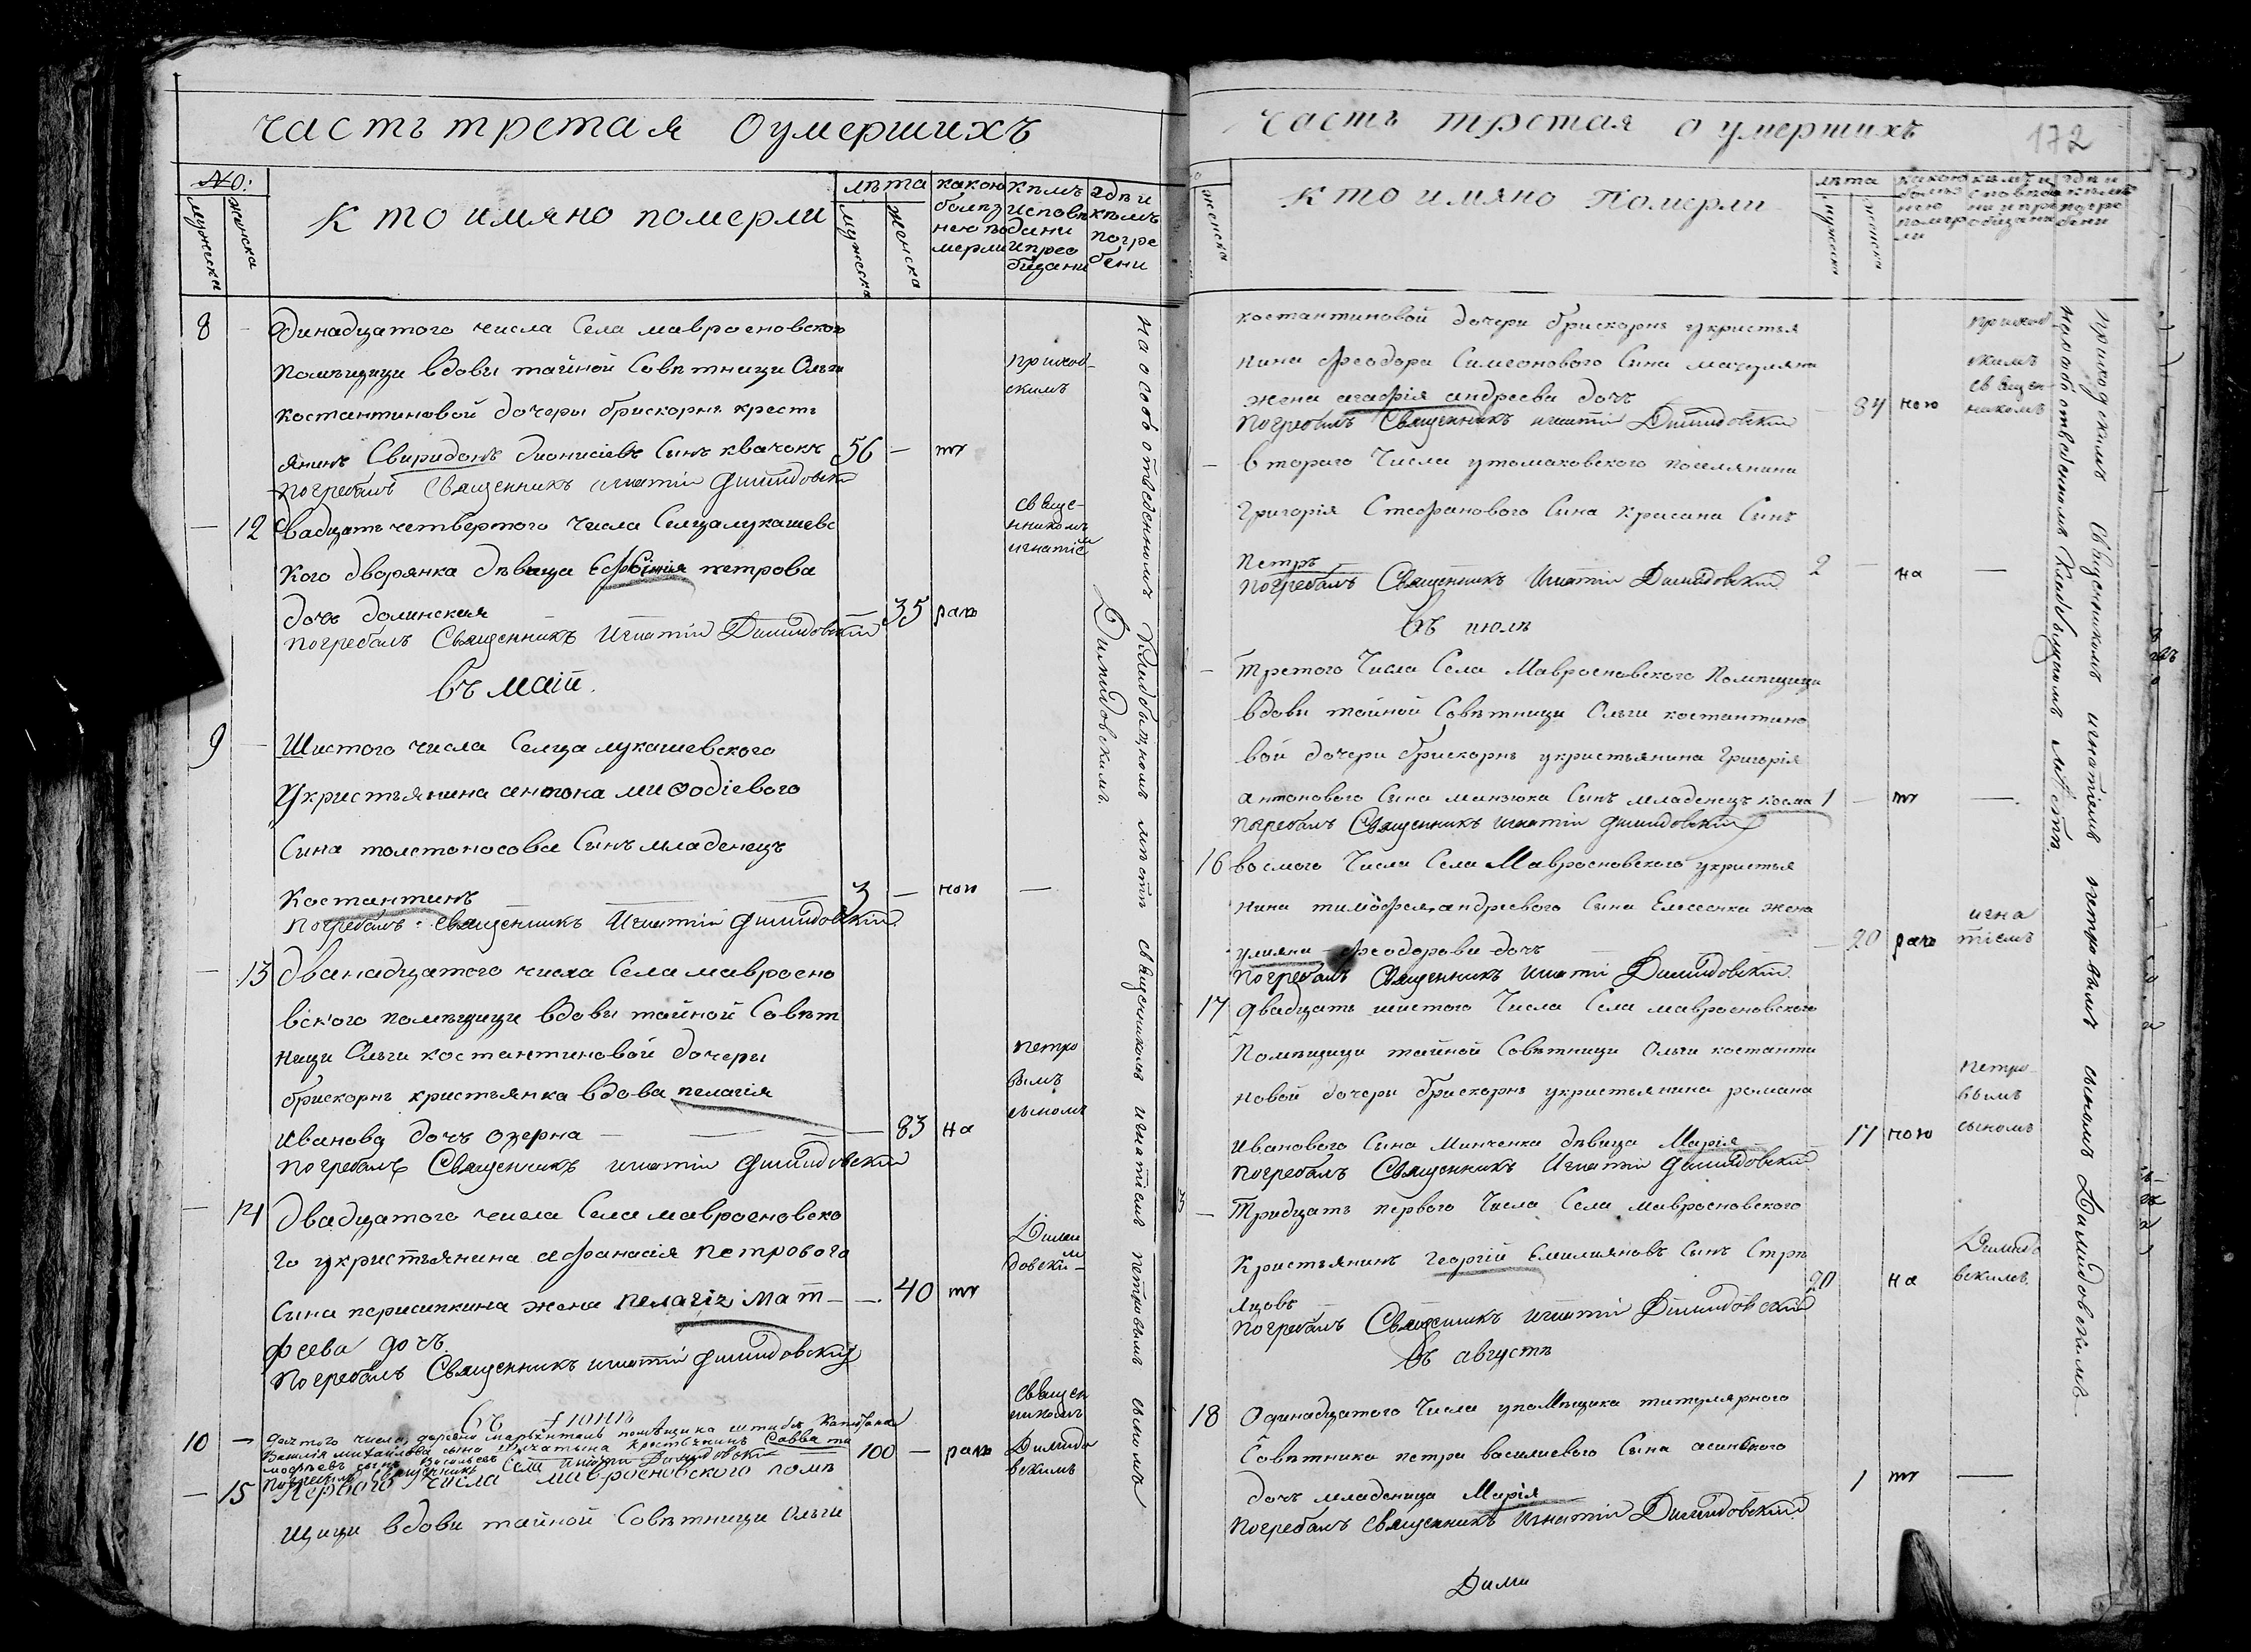 часть третая О умершихъ
№:
мужеска
женска
Кто имяно померли
лѣта
мужеска
женска
какою болѣз нею по мерли
кѣмъ исповѣ дани и прео бщани
гдѣ и кѣмъ погре бени
8 – Одинадцатого числа Села мавроеновского
помѣщици вдовы тайной Совѣтници Ольги
костантиновой дочеры брискорнъ кресть
янинъ Свиридонъ дионисіевъ Сынъ квачокъ 56 –
погребалъ Священникъ игнатіи Димидовскі
– 12 Двадцать четвертого числа Селцалукашевс
кого дворянка дѣвица Ефросинія петрова
дочь долинская – 35
погребалъ Священникъ Игнатіи Димидовскій
въ маіи.
9 – Шистого числа Селца лукашевского
Укристьянина антона мифодіевого
Сина толстоносова Сынъ младенецъ
Костантинъ 3 – ною –
погребалъ Священникъ Игнатіи Димидовскій
– 13 Дванадцатого числа Села мавроено
вского помѣщици вдовы тайной Совѣт
ници Ольги костантиновой дочеры
брискорнъ кристьянка вдова пелагія
Иванова дочь озерна – 83 на
погребалъ Священникъ игнатіи Димидовскій
– 14 Двадцатого числа Села мавроеновско
го укристьянина афанасія петрового
Сына персипкина жена пелагія мат – 40
феева дочь
погребалъ Священникъ игнатіи Димидовскій
въ іюнѣ
10 – 100 –
– 15 Первого Числа мавроеновского помѣ
щици вдовы тайной Совѣтници Ольги
приход
скимъ
свяще-
нникомъ
игнатіе
петро
вымъ
сыномъ
Дими
довски
священ
никомъ
Димидо
вскимъ
на особо отведенномъ кладбищномъ мѣстѣ священникомъ игнатіемъ петровымъ сыномъ
Димидовскимъ.
часть третая о умершихъ
172
женска
кто имяно померли
лѣта
мужеска
женска
какою болѣз ною помер ли
кѣмъ и споведа ни и прео общани
гдѣ и кѣмъ погре бени
костантиновой дочери брискорнъ укристья
нина феодора Симеонового Сина
жена агафія андреева дочь 84 ною
погребалъ Священникъ игнатіи Димидовскій
– втораго Числа утомаковского поселянина
Григорія Стефанового Сина красана Синъ
Петръ 2 – на –
погребалъ Священникъ Игнатіи Димидовскій
въ июлѣ
– третого Числа Села Мавроеновского помѣщици
вдовы тайной Совѣтници Ольги костантино
вой дочери брискорнъ укристьянина Григорія
антонового Сина манзюка Синъ младенецъ косма 1 – –
погребалъ Священникъ игнатіи димидовскій
16 восмого Числа Села Мавроеновского укристья
нина тимофея андреевого Сина Елесенка жена
улияна феодорова дочь – 20
погребалъ Священникъ игнатіи Димидовскій
17 двадцать шистого Числа Села мавроеновского
Помѣщици тайной Совѣтници Ольги костанти
новой дочеры брискорнъ укристьянина романа
Иванового Сина Минченка дѣвица Марія 17 ною
погребалъ Священникъ Игнатіи Димидовскій
– Тридцать первого Числа Села мавроеновского
Кристьянинъ Георгій Емилияновъ Синъ Стрѣ
лцовъ 20 на
погребалъ Священникъ игнатіи Димидовскій
въ августѣ
18 Одинадцатого Числа упомѣщика титулярного
Совѣтника петра василиевого Сина
дочь младеница Марія 1 –
погребалъ священникъ Игнатіи Димидовскій
Дими
приход
скимъ
священ-
никомъ
игна
тіемъ
петро
вымъ
сыномъ
Димидо
вскимъ
приходскимъ Священникомъ игнатіемъ петровымъ сыномъ Димидовскимъ